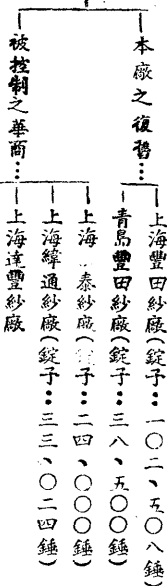 本廠之復…
上海豐田紗廠(錠子：一〇二、五〇八錘)
青島豐田紗廠(錠子：三八、五〇〇錘)
被控制之華商…
上海 泰紗廠( 子：二四、〇〇〇錘)
上海緯通紗廠(錠子：三三、〇二四錘)
上海達豐紗廠